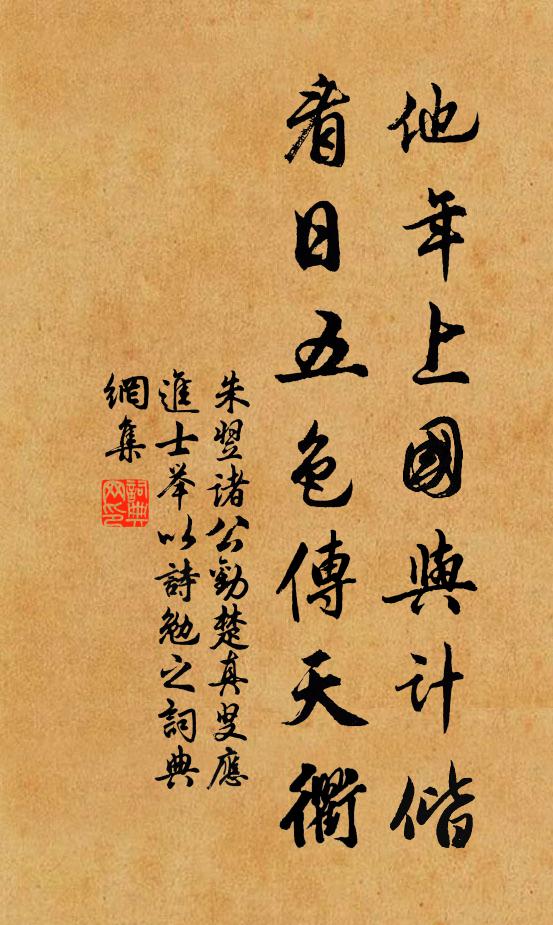 他年上國與計偕
看日五色傳天衢
朱翌諸公勸楚真叟應
進士举以詩勉之詞典
網集
詞典
网印